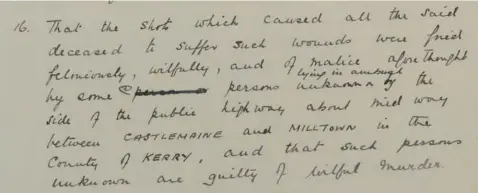 16. That the shots which caused all the said
deceased to suffer such wounds were fired
feloniously, wilfully, and of malice aforethought
by some persons unknown lying in ambush by the
side of the public highway about mid way
between CASTLEMAINE and MILLTOWN in the
County of KERRY, and that such persons
unknown are guilty of wilful murder.